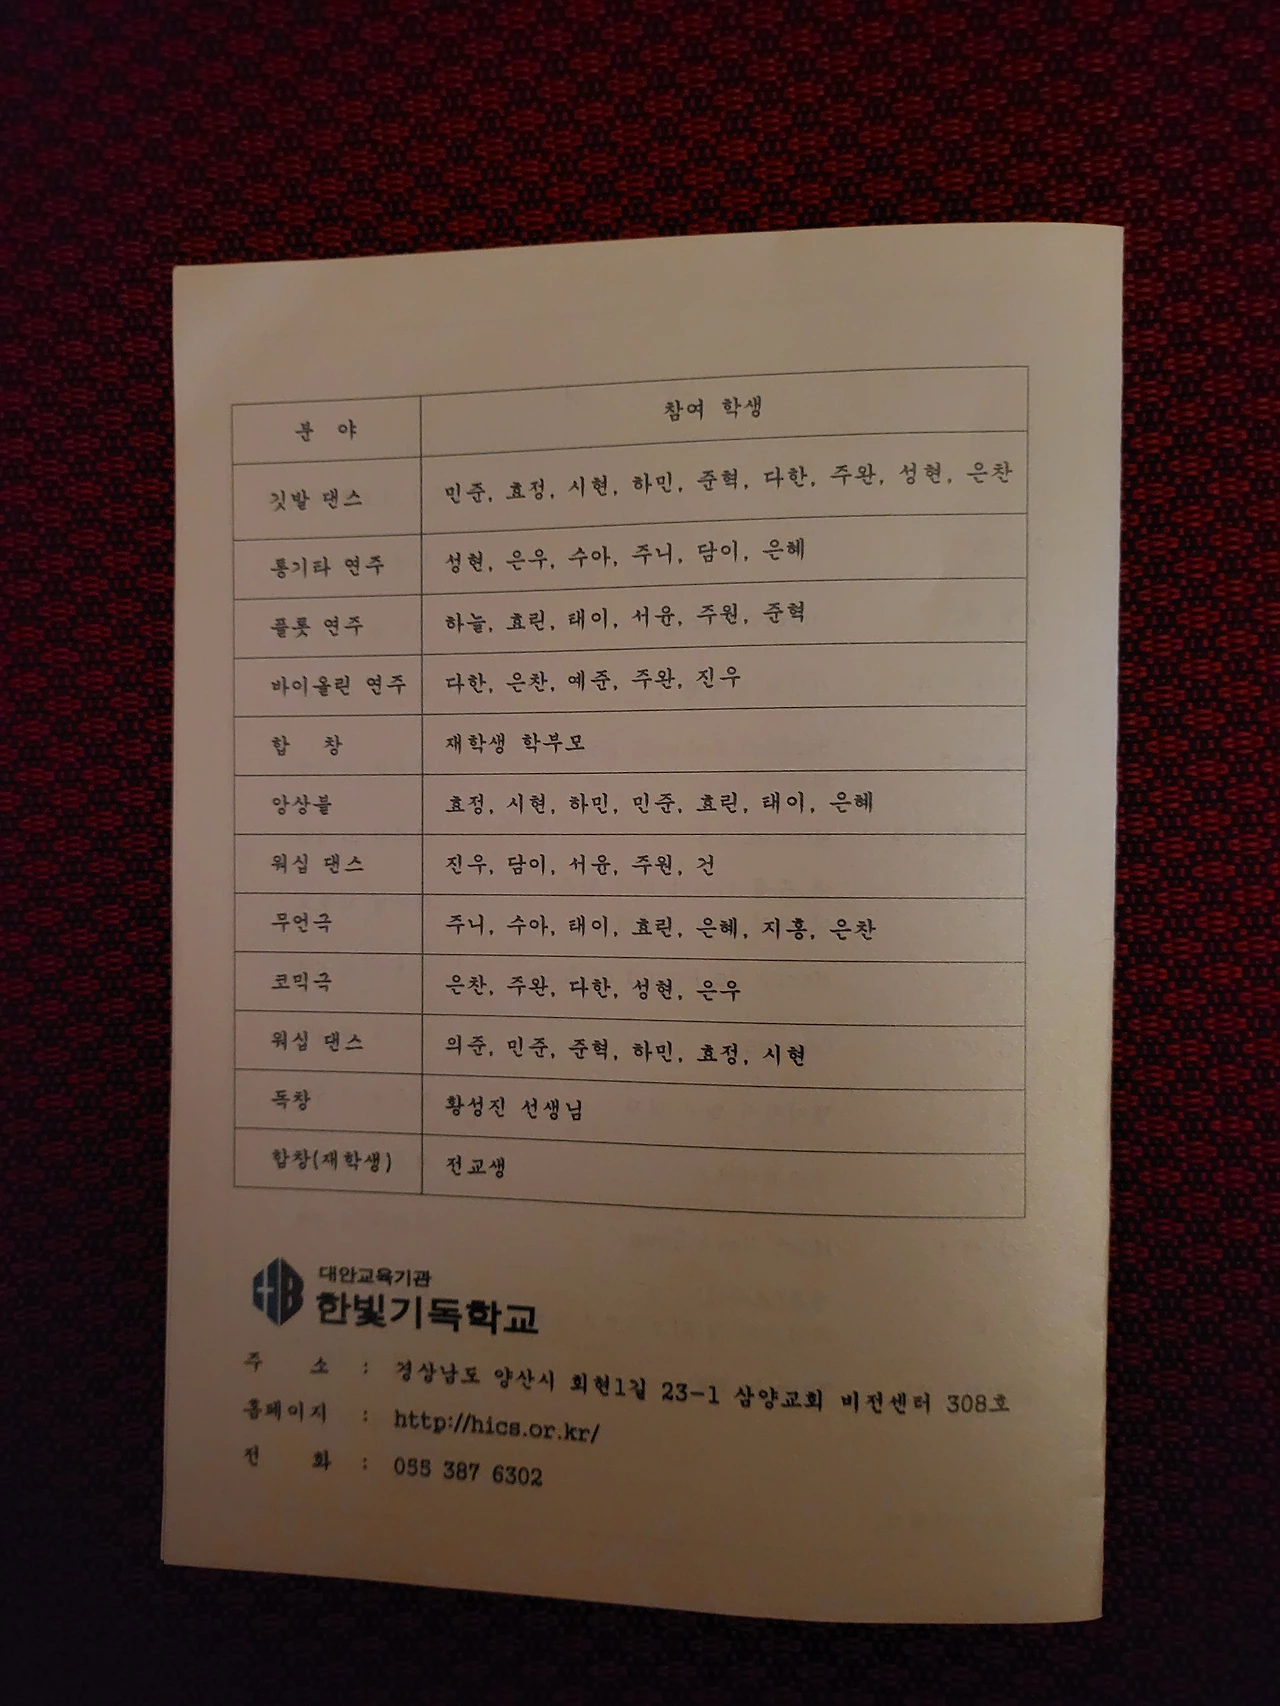 분 야 참여 학생
깃발 댄스 민준, 효정, 시현, 하민, 준혁, 다한, 주완, 성현, 은찬
통기타 연주 성현, 은우, 수아, 주니, 담이, 은혜
플룻 연주 하늘, 효린, 태이, 서윤, 주원, 준혁
바이올린 연주 다한, 은찬, 예준, 주완, 진우
합 창 재학생 학부모
앙상블 효정, 시현, 하민, 민준, 효린, 태이, 은혜
워십 댄스 진우, 담이, 서윤, 주원, 건
무언극 주니, 수아, 태이, 효린, 은혜, 지홍, 은찬
코믹극 은찬, 주완, 다한, 성현, 은우
워십 댄스 의준, 민준, 준혁, 하민, 효정, 시현
독창 황성진 선생님
합창(재학생) 전교생
HB 대안교육기관
한빛기독학교
주 소 : 경상남도 양산시 회현1길 23-1 삼양교회 비전센터 308호
홈페이지 : http://hics.or.kr/
전 화 : 055 387 6302